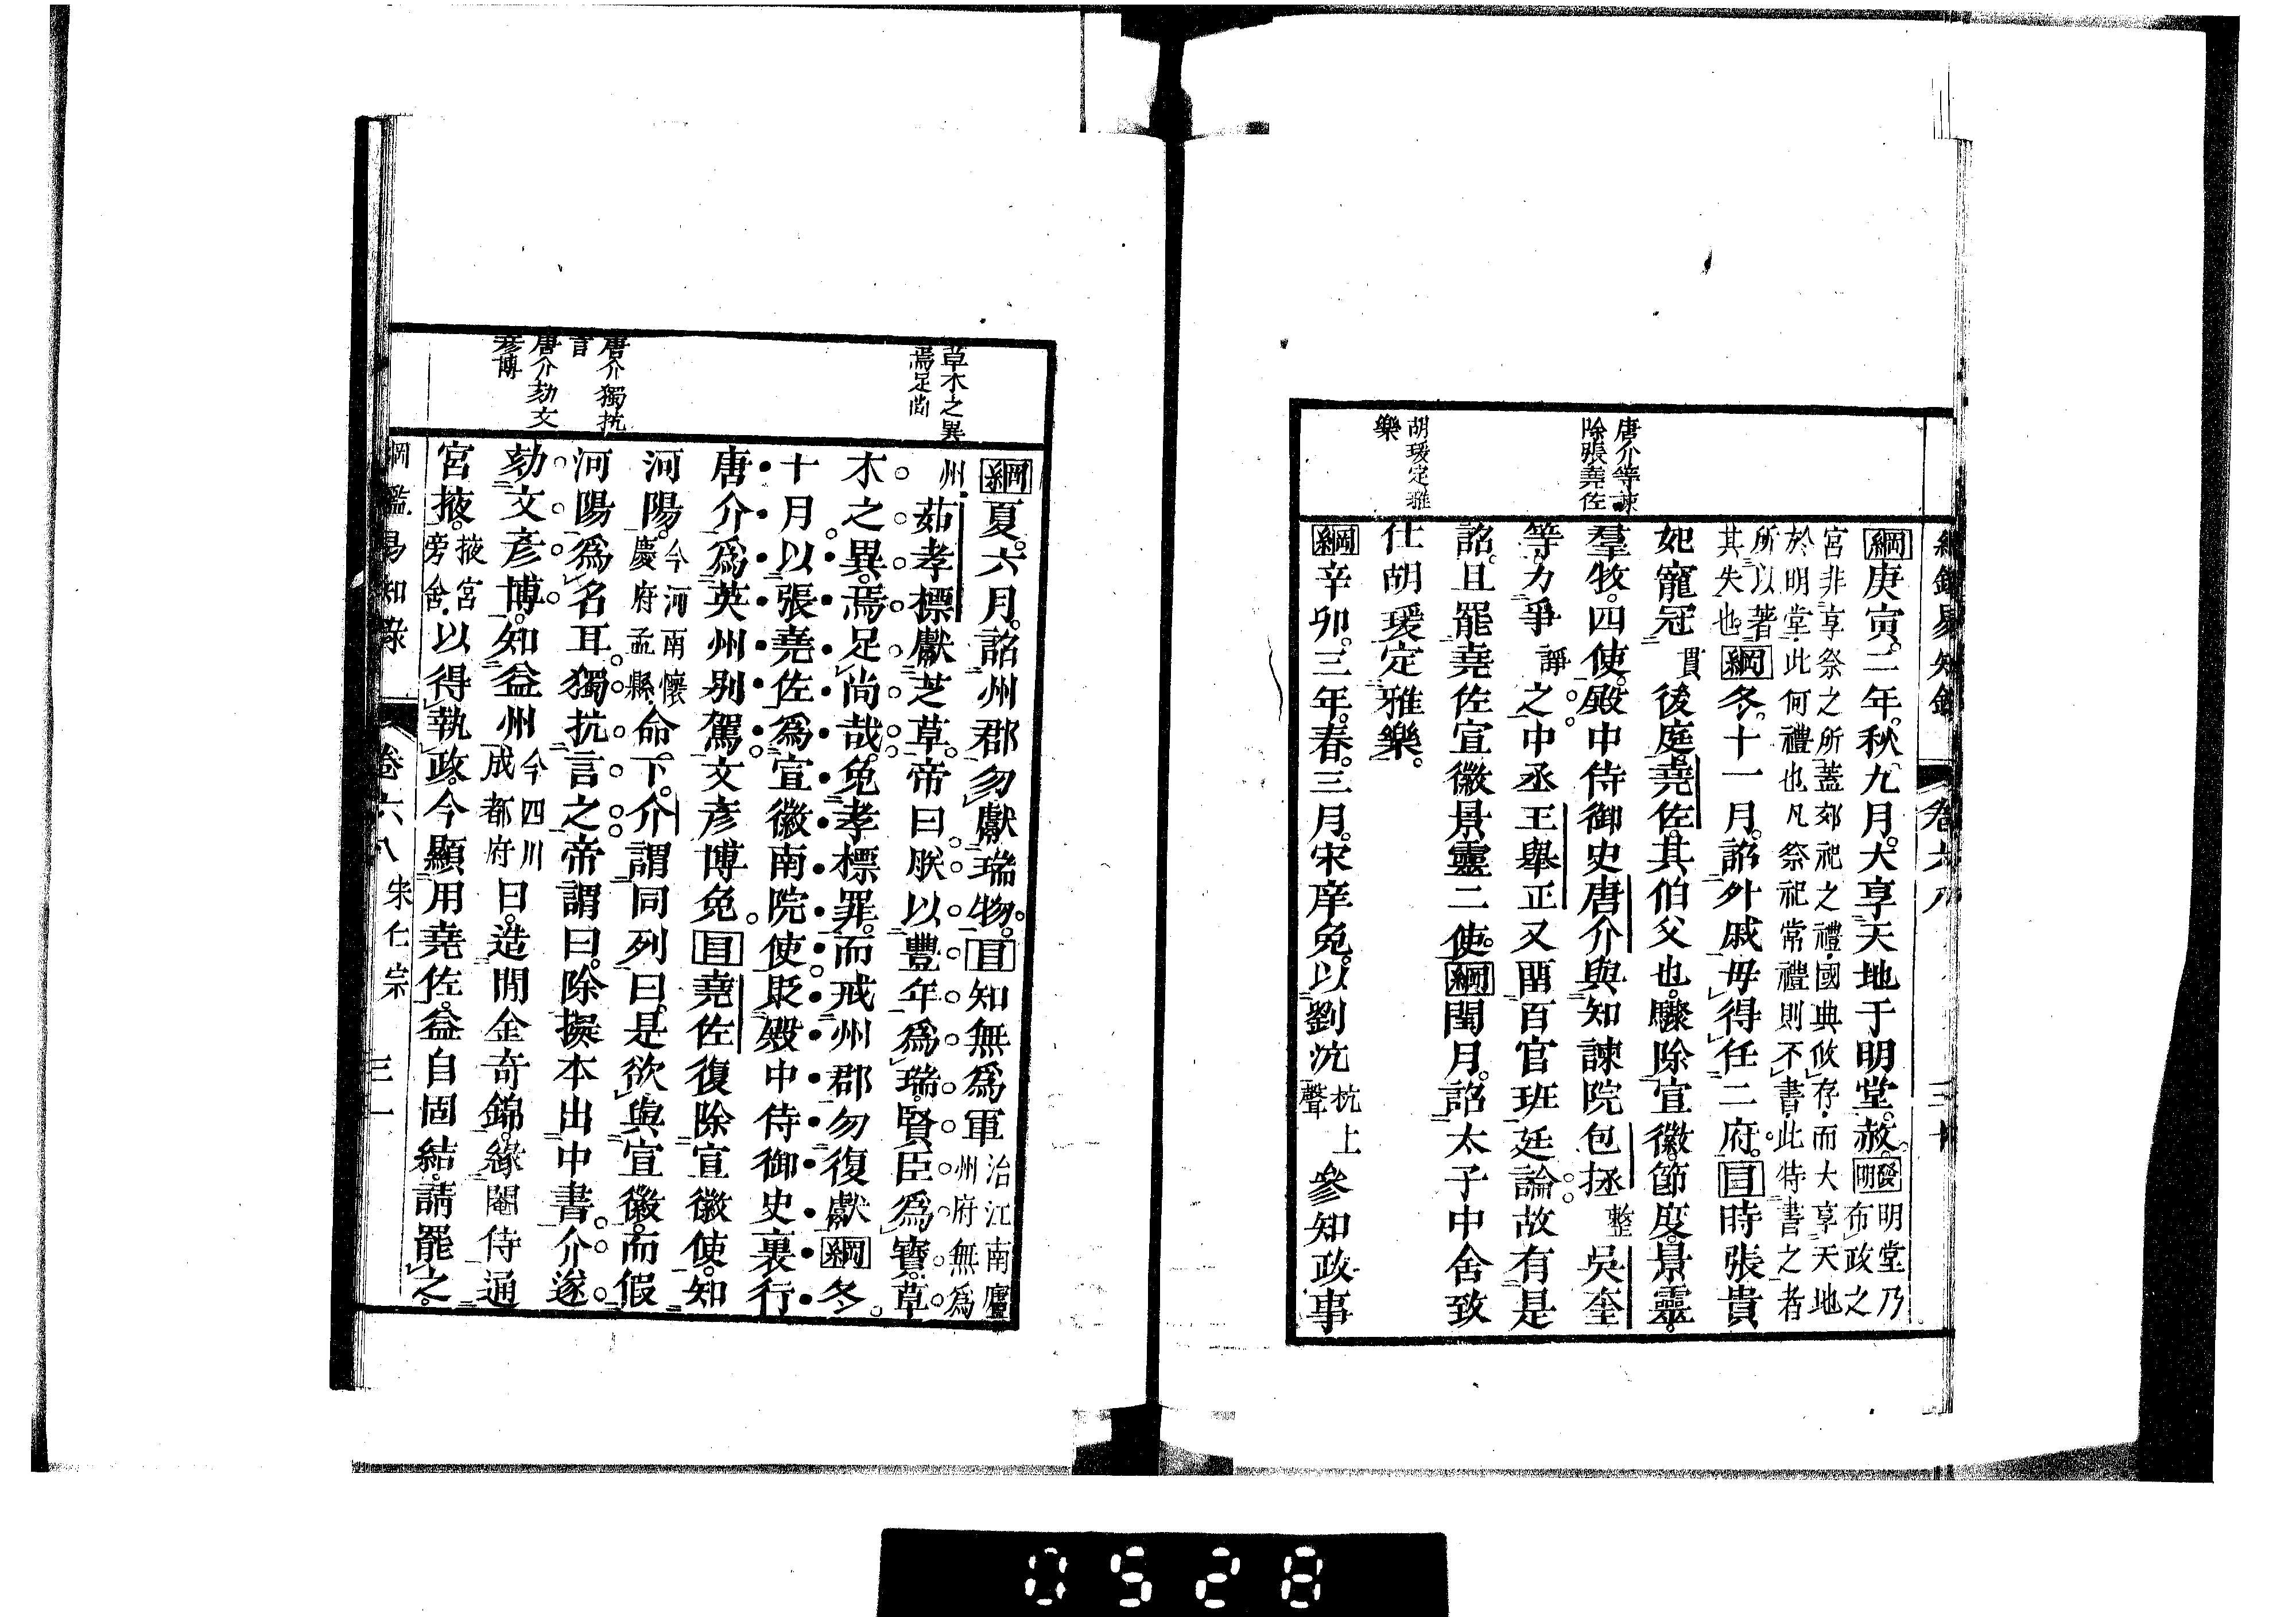 綱鑑易知錄 卷六八
唐介等諫
除張堯佐
胡瑗定雅
樂
綱庚寅。二年。秋。九月。大享天地于明堂。赦。發明明堂乃布政之
宮非享祭之所蓋郊祀之禮國典攸存而大享天地
於明堂此何禮也凡祭祀常禮則不書此特書之者
所以著
其失也綱冬。十一月。詔外戚毋得任二府。目時張貴
妃寵冠貫後庭。堯佐。其伯父也。驟除宣徽。節度。景靈。
羣牧。四使。殿中侍御史唐介與知諫院包拯整吳奎
等力爭諍之。中丞王舉正又留百官班廷論。故有是
詔。且罷堯佐宣徽景靈二使。綱閏月。詔太子中舍致
仕胡瑗定雅樂。
綱辛卯。三年。春。三月。宋庠免。以劉沆杭上聲參知政事
草木之異
焉足尚
唐介獨抗
言
唐介劾文
彥博
綱夏。六月。詔州郡勿獻瑞物。目知無爲軍治江南廬州府無爲
州茹孝標獻芝草。帝曰。朕以豐年爲瑞。賢臣爲寶。草
木之異。焉足尚哉。免孝標罪。而戒州郡勿復獻綱冬。
十月。以張堯佐爲宣徽南院使。貶殿中侍御史裏行
唐介爲英州別駕。文彥博免。目堯佐復除宣徽使。知
河陽。今河南懷慶府孟縣命下。介謂同列曰。是欲與宣徽。而假
河陽爲名耳。獨抗言之。帝謂曰。除擬本出中書。介遂
劾文彥博。知益州今四川成都府曰。造閒金奇錦。緣閹侍通
宮掖。掖宮旁舍以得執政。今顯用堯佐。益自固結。請罷之。
綱鑑易知錄 卷六八 宋仁宗 三一
0528